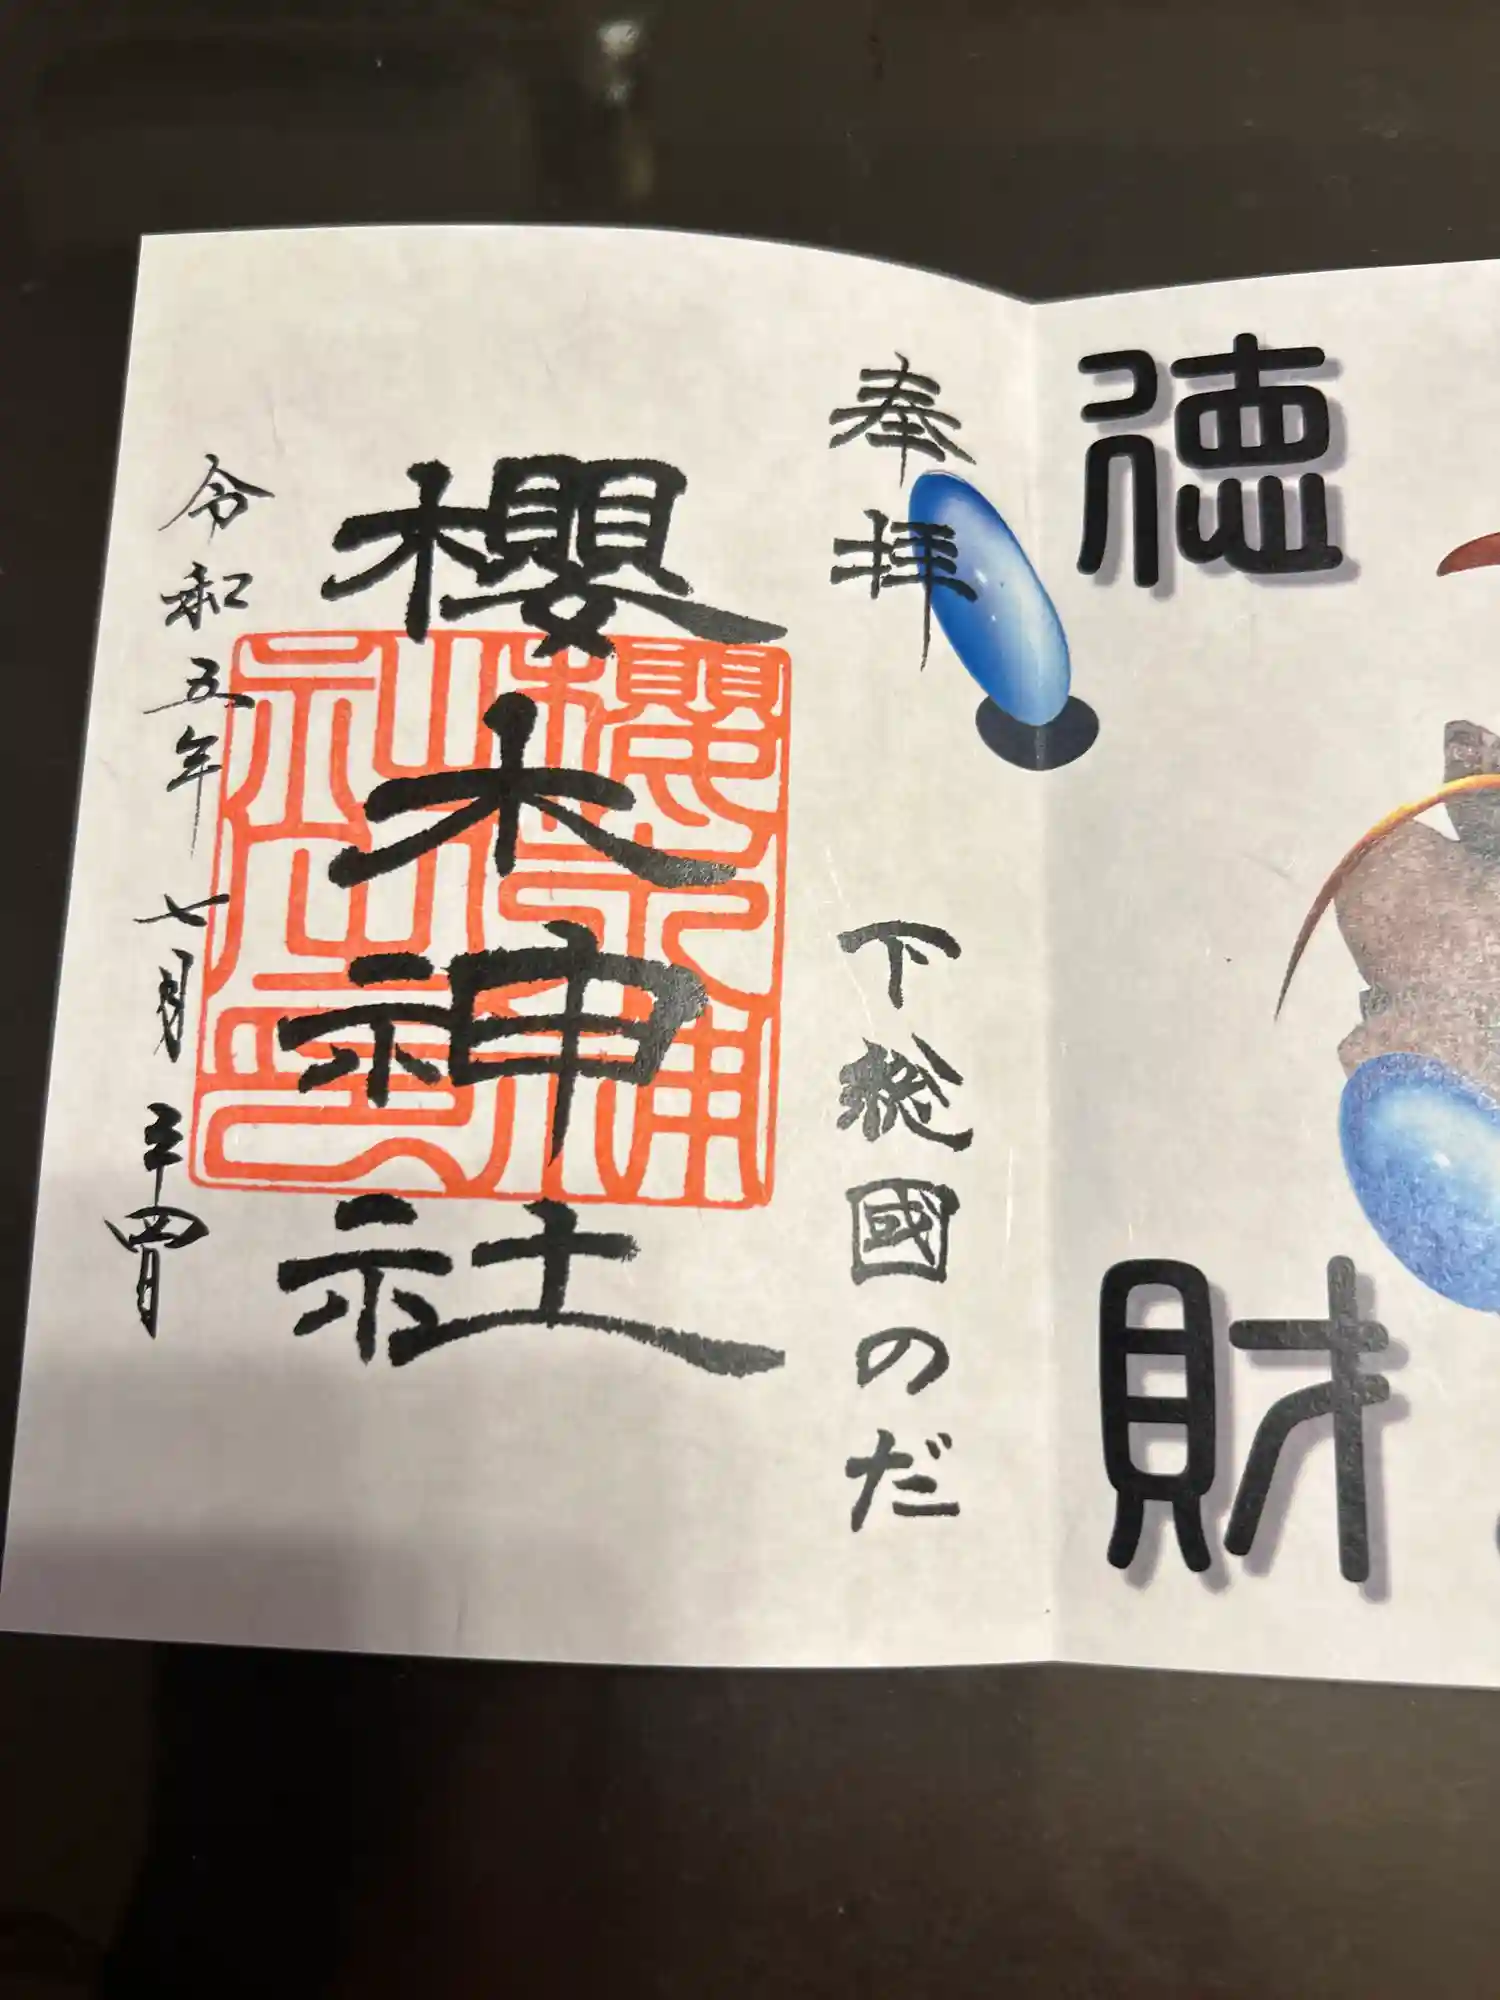 徳財
奉拝 下総國のだ
櫻木神社
櫻木神
社之印
令和五年七月二十四日